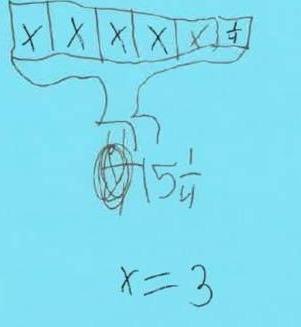 x x x x x 1/4
15 1/4
x = 3